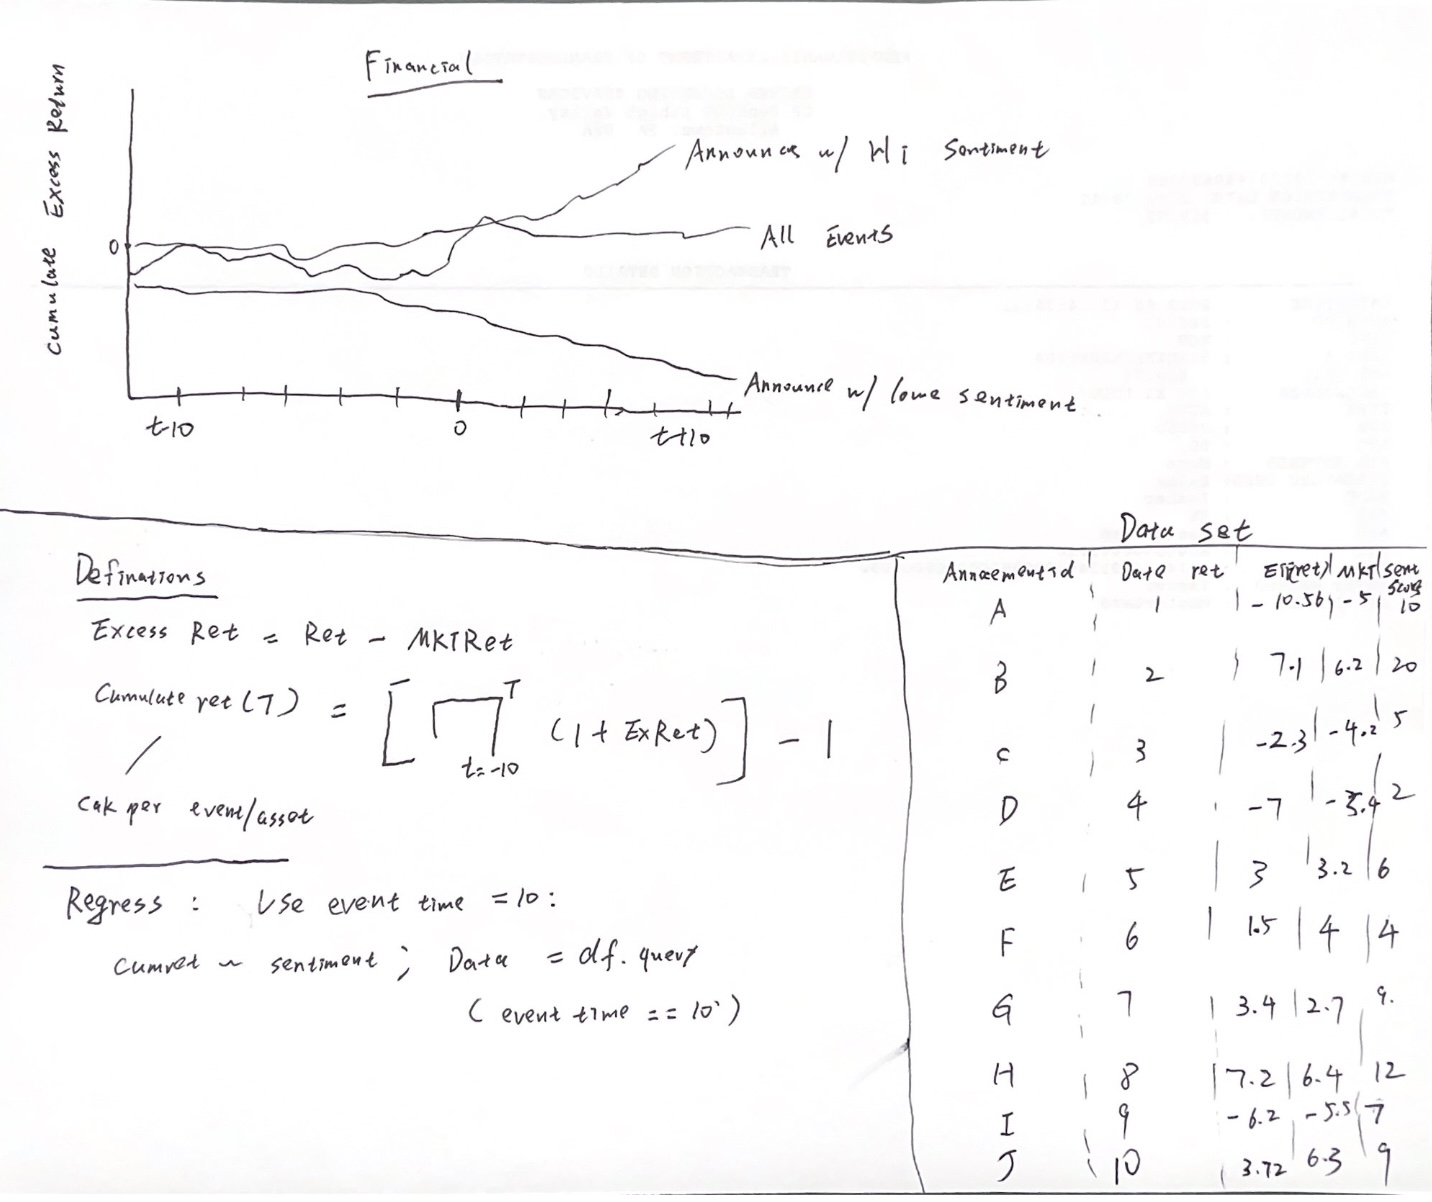 Financial
Cumulate Excess Return
Announces w/ Hi Sentiment
0
All Events
Announce w/ lowe sentiment.
t-10
0
t+10
Definations
Excess Ret = Ret - MKTRet
Cumulute ret (T) = [ ∏ T t=-10 (1 + ExRet) ] - 1
per event/asset
Regress : Use event time = 10 :
Cumret ~ sentiment ; Data = df. query
( event time == 10')
Data set
Date ret MKT sent score
A 1 -10.56 -5 10
B 2 7.1 6.2 20
C 3 -2.3 -4.2 5
D 4 -7 2
E 5 3 3.2 6
F 6 1.5 4 4
G 7 3.4 2.7 9.
H 8 7.2 6.4 12
I 9 -6.2 -5.5 7
J 10 3.72 6.3 9